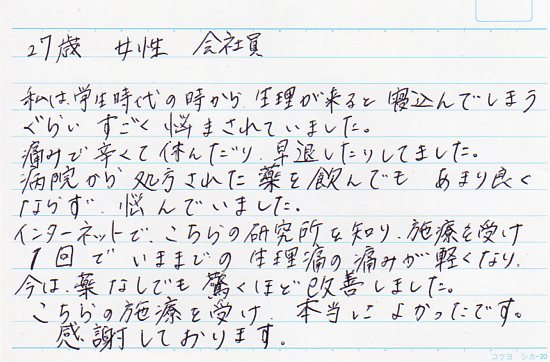 27歳 女性 会社員
私は学生時代の時から、生理が来ると寝込んでしまう
ぐらい すごく悩まされていました。
痛みで辛くて休んだり、早退したりしてました。
病院から処方された薬を飲んでも あまり良く
ならず、悩んでいました。
インターネットで、こちらの研究所を知り、施療を受け
1回でいままでの生理痛の痛みが軽くなり、
今は、薬なしでも驚くほど改善しました。
こちらの施療を受け、本当によかったです。
感謝しております。
コクヨ シカ-20